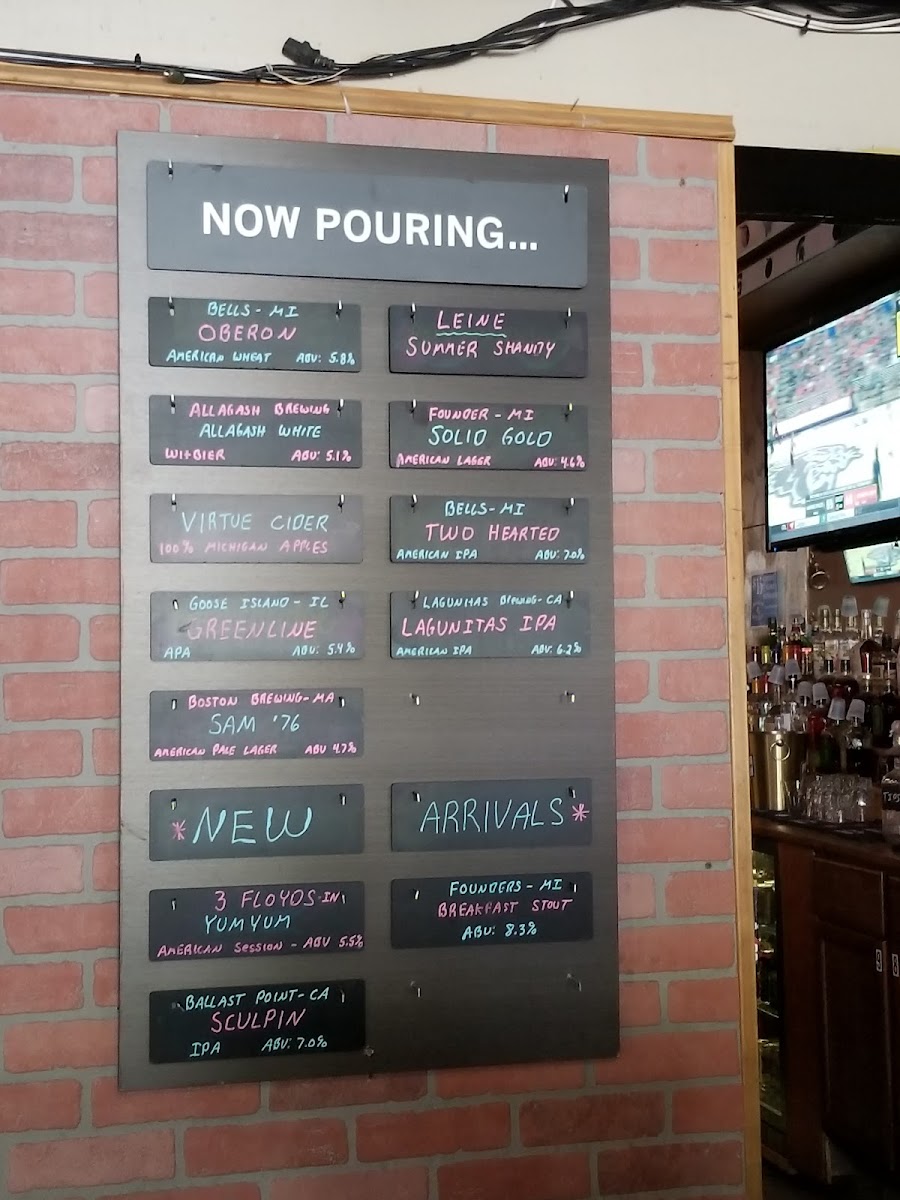 NOW POURING...
BELLS - MI
OBERON
AMERICAN WHEAT ABV: 5.8%
LEINE
SUMMER SHANITY
ALLAGASH BREWING
ALLAGASH WHITE
WITBIER ABV: 5.1%
FOUNDER - MI
SOLID GOLD
AMERICAN LAGER ABV: 4.6%
VIRTUE CIDER
100% MICHIGAN APPLES
BELLS - MI
TWO HEARTED
AMERICAN IPA ABV: 7.0%
GOOSE ISLAND - IL
GREENLINE
APA ABV: 5.4%
LAGUNITAS BREWING - CA
LAGUNITAS IPA
AMERICAN IPA ABV: 6.2%
BOSTON BREWING - MA
SAM '76
AMERICAN PALE LAGER ABV 4.7%
*NEW
ARRIVALS*
3 FLOYDS - IN
YUMYUM
AMERICAN SESSION - ABV 5.5%
FOUNDERS - MI
BREAKFAST STOUT
ABV: 8.3%
BALLAST POINT - CA
SCULPIN
IPA ABV: 7.0%